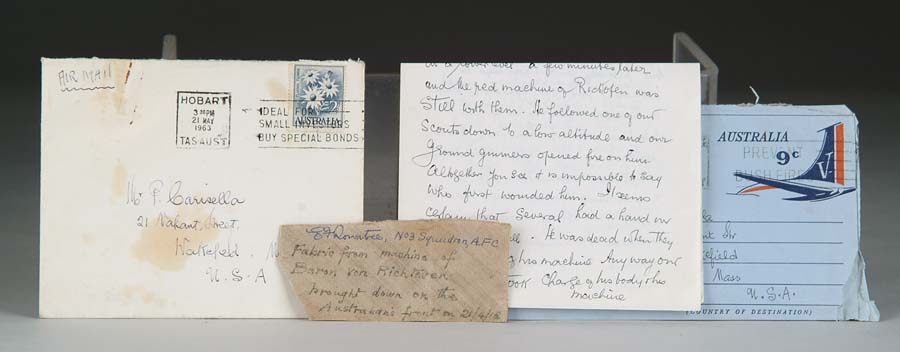 AIR MAIL
HOBART
3 30PM
21 MAY
1963
TAS AUST
IDEAL FOR
SMALL INVESTORS
BUY SPECIAL BONDS
2/-
AUSTRALIA
Mr P. Carisella
21 Street
Wakefield, M
U. S. A
a few minutes later
and the red machine of Rickofen was
Still with them. He followed one of our
Scouts down to a low altitude and our
Ground gunners opened fire on him
Altogether you see it is impossible to say
who first wounded him. It seems
certain that several had a hand in
. He was dead when they
his machine Any way our
took Charge of his body & his
machine
No 3 Squadron, A.F.C
Fabric from machine of
Baron von Richtoven
brought down on the
Australian's front on 21/4/18
AUSTRALIA
9c
PREVENT
BUSH FIRES
V
St
field
Mass
U.S.A.
(COUNTRY OF DESTINATION)